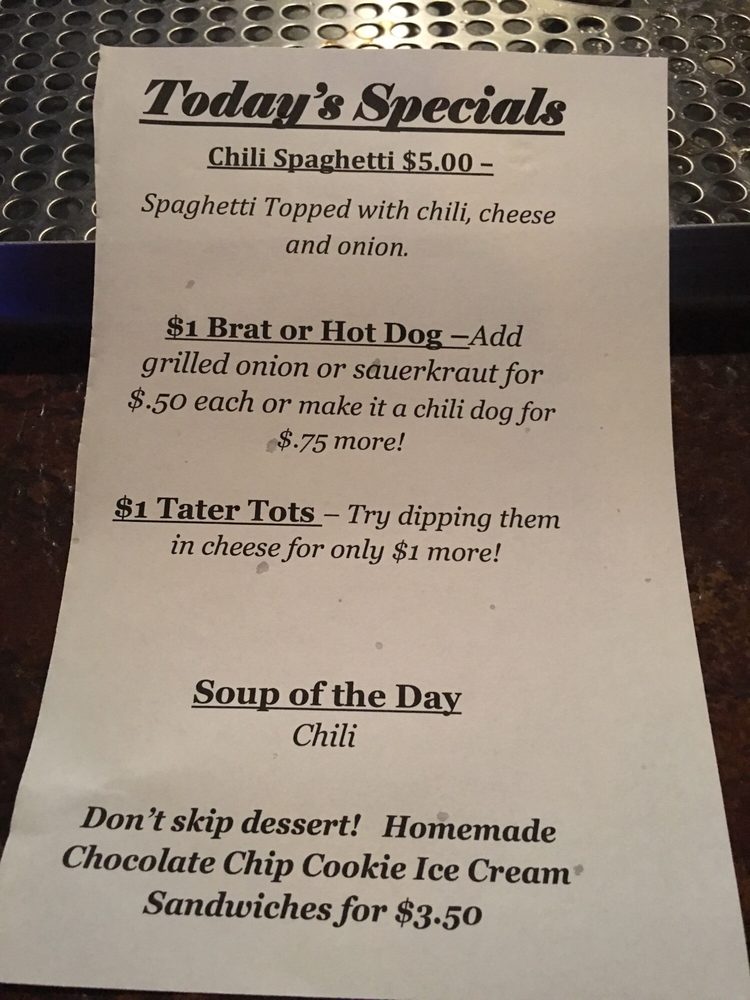 Today's Specials
Chili Spaghetti $5.00 –
Spaghetti Topped with chili, cheese
and onion.
$1 Brat or Hot Dog –Add
grilled onion or sauerkraut for
$.50 each or make it a chili dog for
$.75 more!
$1 Tater Tots – Try dipping them
in cheese for only $1 more!
Soup of the Day
Chili
Don't skip dessert! Homemade
Chocolate Chip Cookie Ice Cream
Sandwiches for $3.50